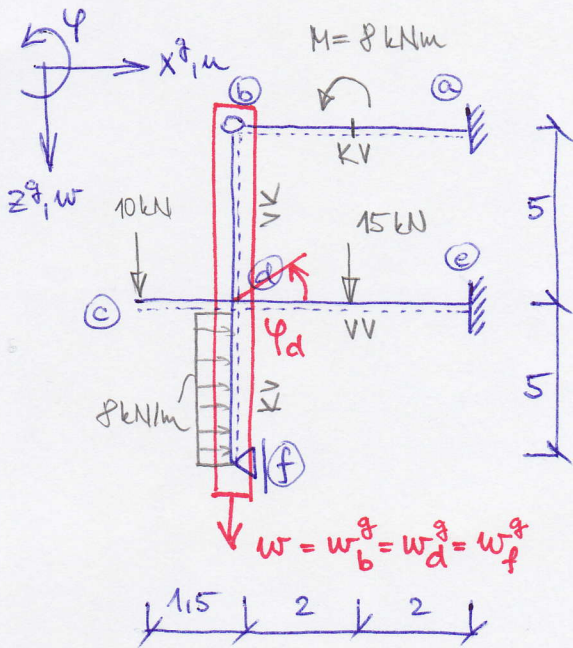 φ
x^g, u
z^g, w
M = 8 kNm
b
a
KV
10 kN
VK
15 kN
5
d
e
c
φ_d
VV
8 kN/m
KV
5
f
w = w_b^g = w_d^g = w_f^g
1,5 2 2